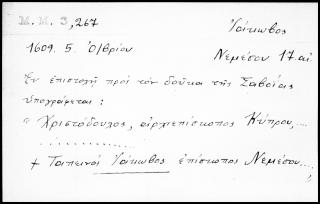 Μ. Μ. 3, 267 Ἰάκωβος
1609. 5. Ὀκτωβρίου Νεμέσου 17 αἰ.
Ἐν ἐπιστολῇ πρὸς τὸν δοῦκα τῆς Σαβοΐας
ὑπογράφεται:
" Χριστόδουλος, ἀρχιεπίσκοπος Κύπρου, ...
..................
+ Ταπεινὸς Ἰάκωβος ἐπίσκοπος Νεμέσου....,